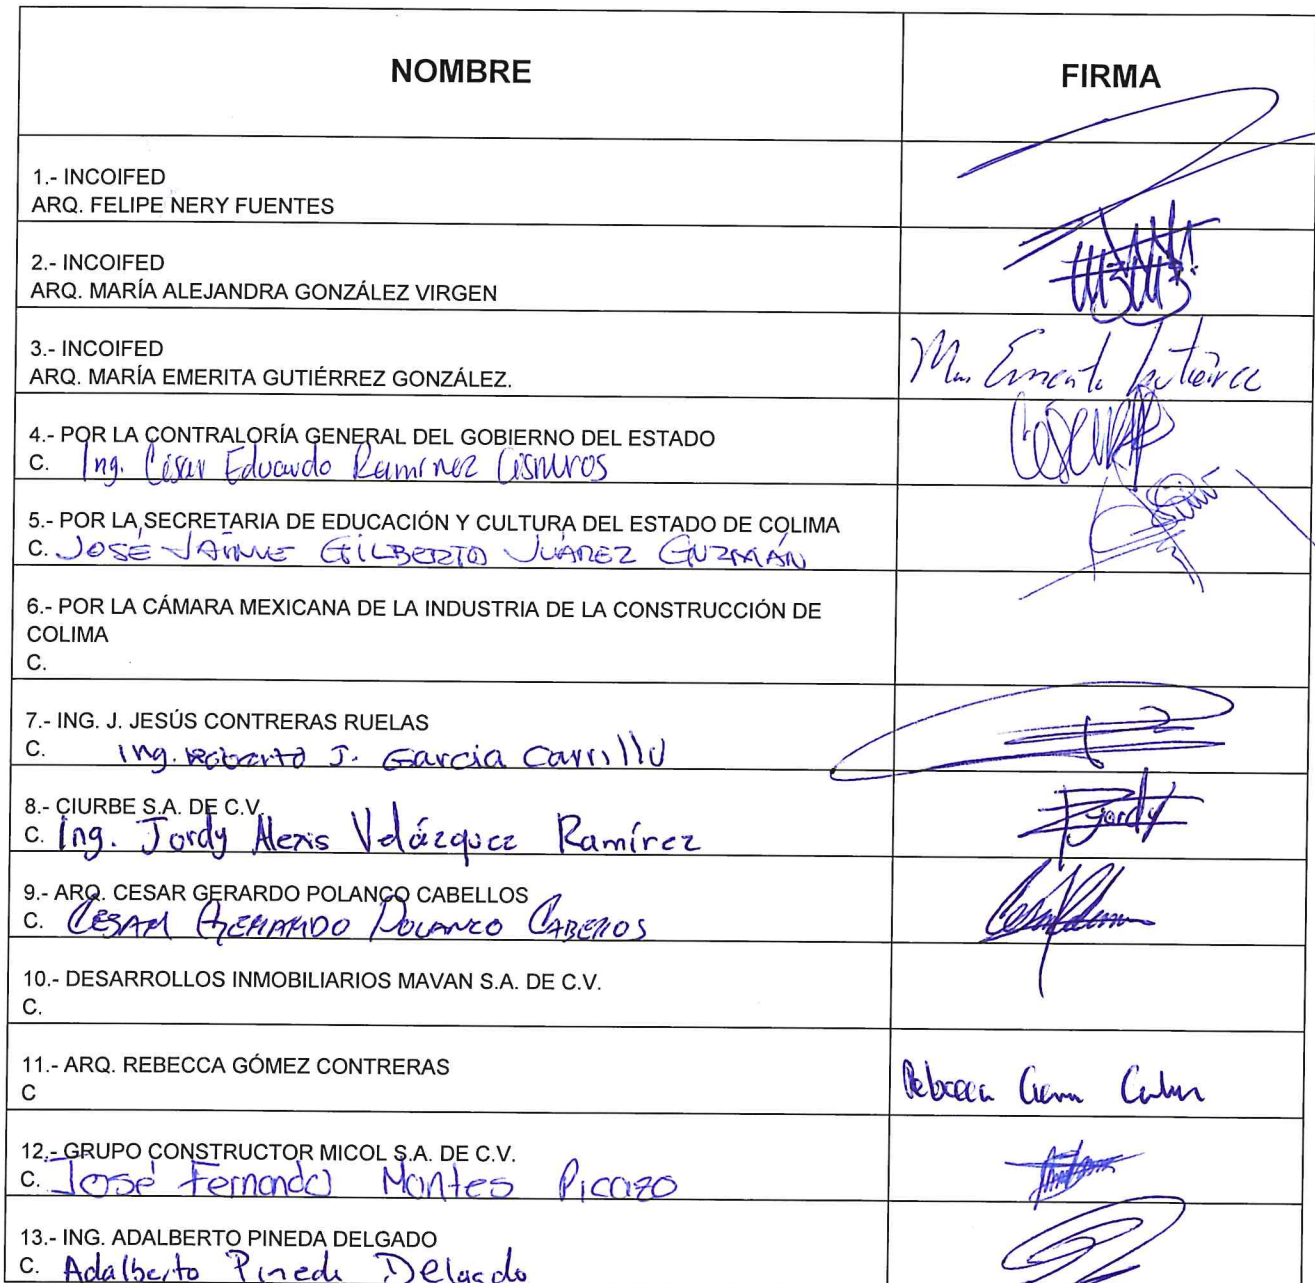 NOMBRE
FIRMA
1.- INCOIFED
ARQ. FELIPE NERY FUENTES
2.- INCOIFED
ARQ. MARÍA ALEJANDRA GONZÁLEZ VIRGEN
3.- INCOIFED
ARQ. MARÍA EMERITA GUTIÉRREZ GONZÁLEZ.
4.- POR LA CONTRALORÍA GENERAL DEL GOBIERNO DEL ESTADO
C. Ing. César Eduardo Ramírez Cisneros
5.- POR LA SECRETARIA DE EDUCACIÓN Y CULTURA DEL ESTADO DE COLIMA
C. JOSÉ JAIME GILBERTO JUÁREZ GUZMÁN
6.- POR LA CÁMARA MEXICANA DE LA INDUSTRIA DE LA CONSTRUCCIÓN DE
COLIMA
C.
7.- ING. J. JESÚS CONTRERAS RUELAS
C. Ing. Roberto J. Garcia Carrillo
8.- CIURBE S.A. DE C.V.
C. Ing. Jordy Alexis Velázquez Ramírez
Jordy
9.- ARQ. CESAR GERARDO POLANCO CABELLOS
C. CESAR GERARDO POLANCO CABELLOS
10.- DESARROLLOS INMOBILIARIOS MAVAN S.A. DE C.V.
C.
11.- ARQ. REBECCA GÓMEZ CONTRERAS
C
Rebecca
12.- GRUPO CONSTRUCTOR MICOL S.A. DE C.V.
C. José Fernando Montes Picazo
13.- ING. ADALBERTO PINEDA DELGADO
C. Adalberto Pineda Delgado